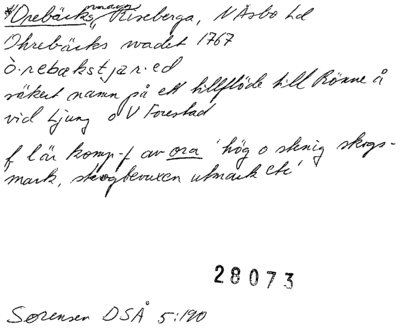 */Orebäcks, Riseberga, N Åsbo hd
Ohrebäcks wadet 1767
ò.rebækstjär.ed
säkert namn på ett tillflöde till Rönne å
vid Ljung o V Forestad
f l är komp-f av ora 'hög o stenig skogs-
mark, skogbevuxen utmark etc'
28073
Sørensen DSÅ 5:190